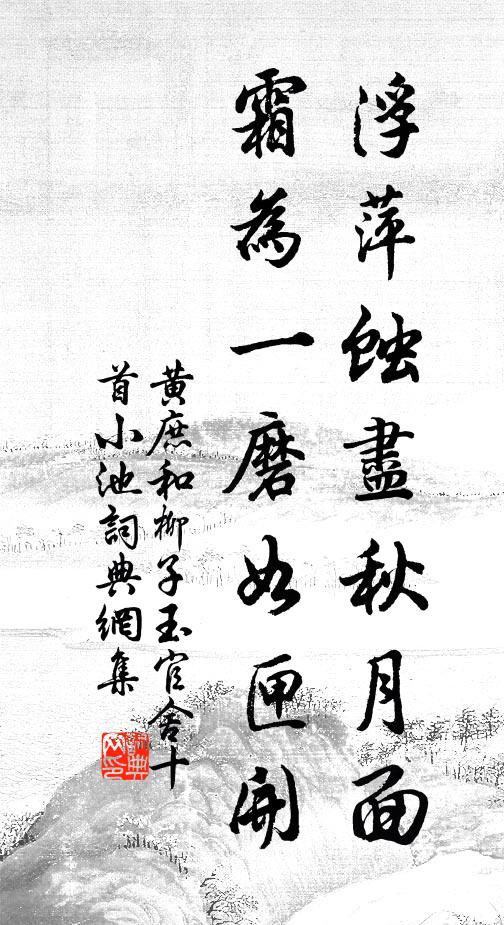 浮萍蝕盡秋月面
霜為一磨如匣開
黃庶和柳子玉官舍十
首小池詞典網集